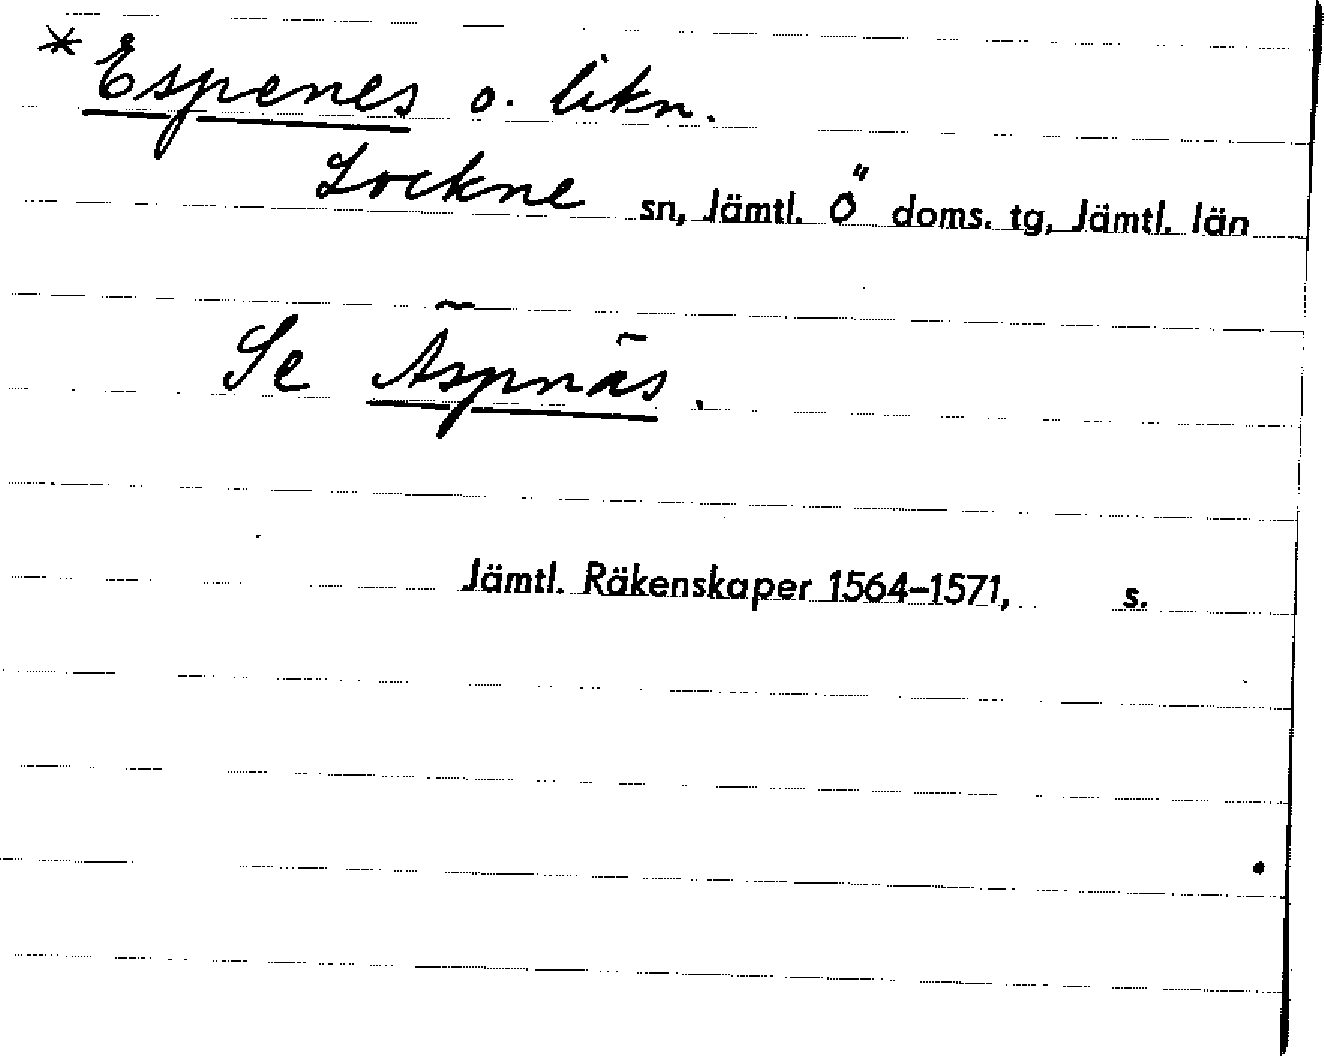 * Espenes o. likn.
Lockne sn, Jämtl. Ö doms. tg, Jämtl. län
Se Äspnäs.
Jämtl. Räkenskaper 1564–1571, s.